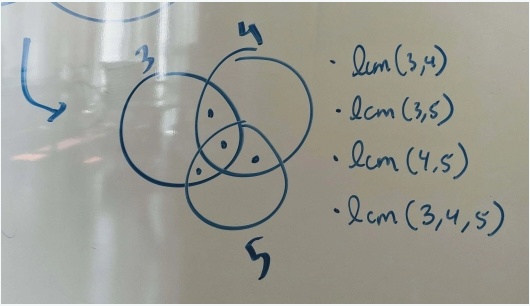 3
4
5
· lcm(3,4)
· lcm(3,5)
· lcm(4,5)
· lcm(3,4,5)